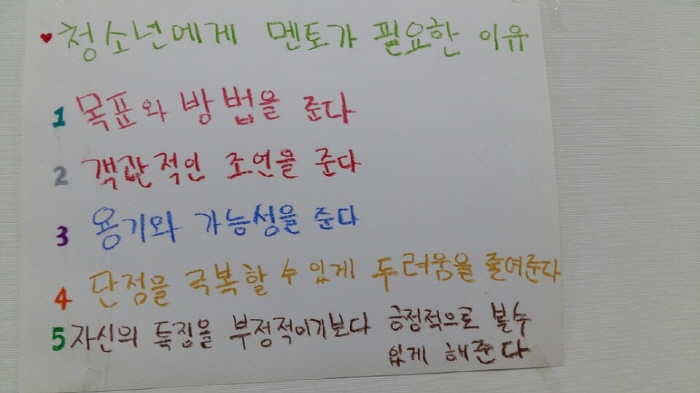 ♥청소년에게 멘토가 필요한 이유
1 목표와 방법을 준다
2 객관적인 조언을 준다
3 용기와 가능성을 준다
4 단점을 극복할 수 있게 두려움을 줄여준다
5 자신의 특징을 부정적이기보다 긍정적으로 볼수
있게 해준다